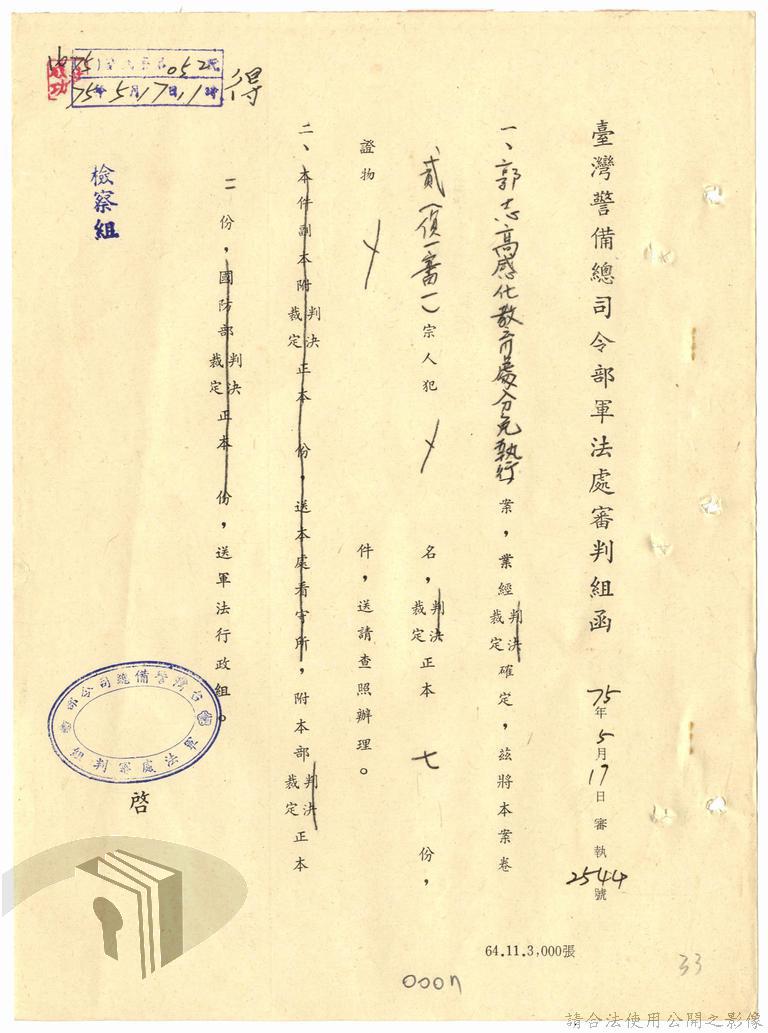 臺灣警備總司令部軍法處審判組函
75年5月17日審執2544號
一、郭志高感化教育處分免執行案,業經判決裁定確定,茲將本案卷
貳(偵一審一)宗人犯 名,判決裁定正本 七 份,
證物 件,送請查照辦理。
二、本件副本附判決裁定正本 份,送本處看守所,附本部判決裁定正本
二份,國防部判決裁定正本 份,送軍法行政組。
檢察組
啓
台灣警備總司令部
軍法處審判組
75年5月17日11時
052
得
64.11.3,000張
0007
33
請合法使用公開之影像